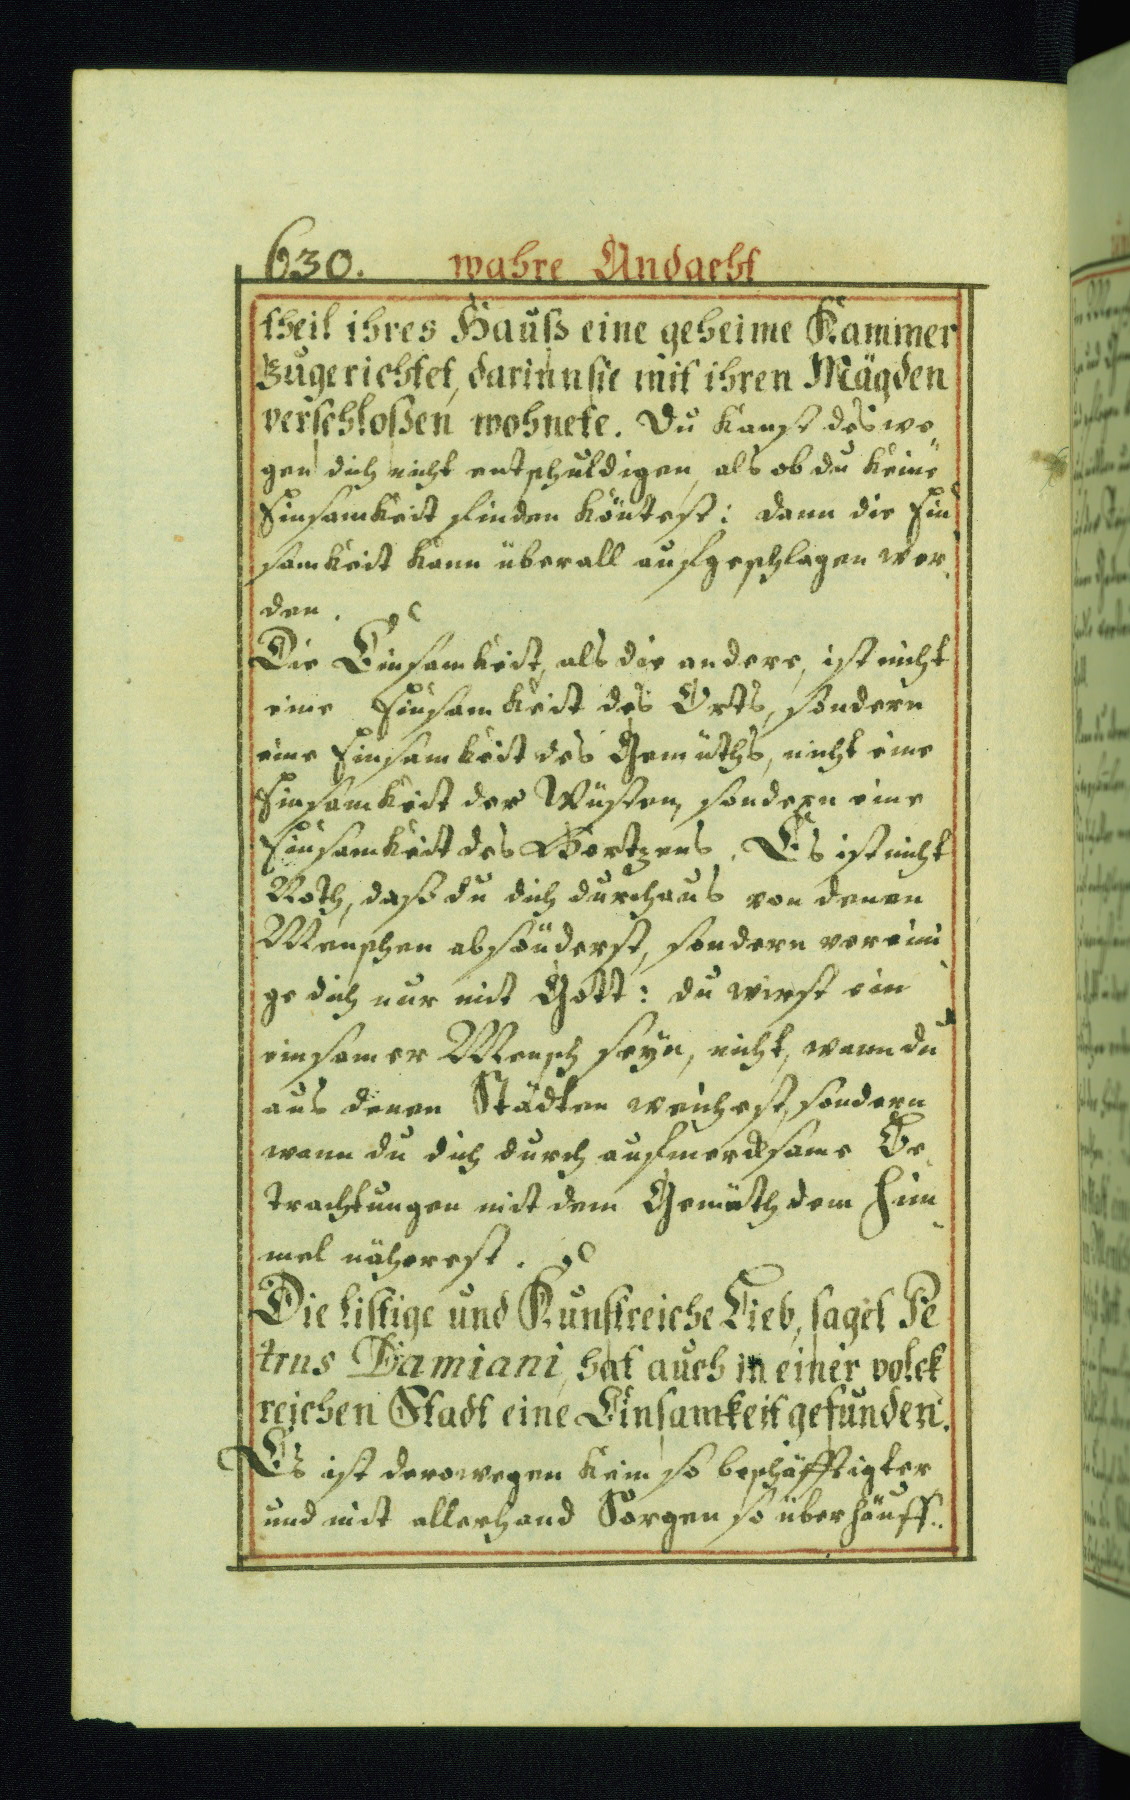 630. wahre Andacht
theil ihres Hauß eine geheime Kammer
Zugerichtet, darinn sie mit ihren Mägden
verschloßen wohnete. Du kanst deswe
gen dich nicht entschuldigen, als ob du keine
Einsamkeit finden köntest: dann die Ein
samkeit kann überall aufgeschlagen wer
den.
Die Einsamkeit, als die andere, ist nicht
eine Einsamkeit des Orts, sondern
eine Einsamkeit des Gemüths, nicht eine
Einsamkeit der Wüsten, sondern eine
Einsamkeit des Hertzens. Es ist nicht
Noth, daß du dich durchaus von denen
Menschen absönderst, sondern vereini
ge dich nur mit Gott: du wirst ein
einsamer Mensch seyn, nicht, wann du
aus denen Städten weichest, sondern
wann du dich durch aufmercksame Be
trachtungen mit dem Gemüth dem Him
mel näherest.
Die listige und Kunstreiche Lieb, saget Pe
trus Damiani, hat auch in einer volck
reichen Stadt eine Einsamkeit gefunden.
Es ist derowegen kein so beschäfftigter
und mit allerhand Sorgen so überhäuff..